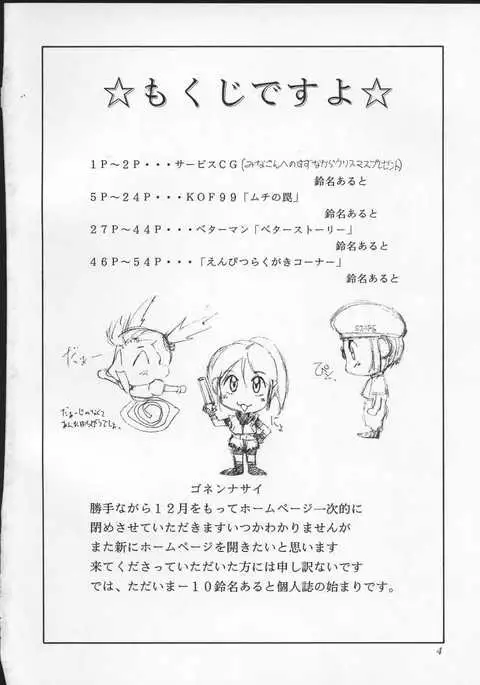 ☆もくじですよ☆
1P～2P・・・サービスCG(みなさんへのすずなからクリスマスプレゼント)
鈴名あると
5P～24P・・・KOF99「ムチの罠」
鈴名あると
27P～44P・・・ベターマン「ベターストーリー」
鈴名あると
46P～54P・・・「えんぴつらくがきコーナー」
鈴名あると
だぁー
ぴと。
にょ
ゴネンナサイ
勝手ながら12月をもってホームページ一次的に
閉めさせていただきますいつかわかりませんが
また新にホームページを開きたいと思います
来てくださっていただいた方には申し訳ないです
では、ただいまー10鈴名あると個人誌の始まりです。
4